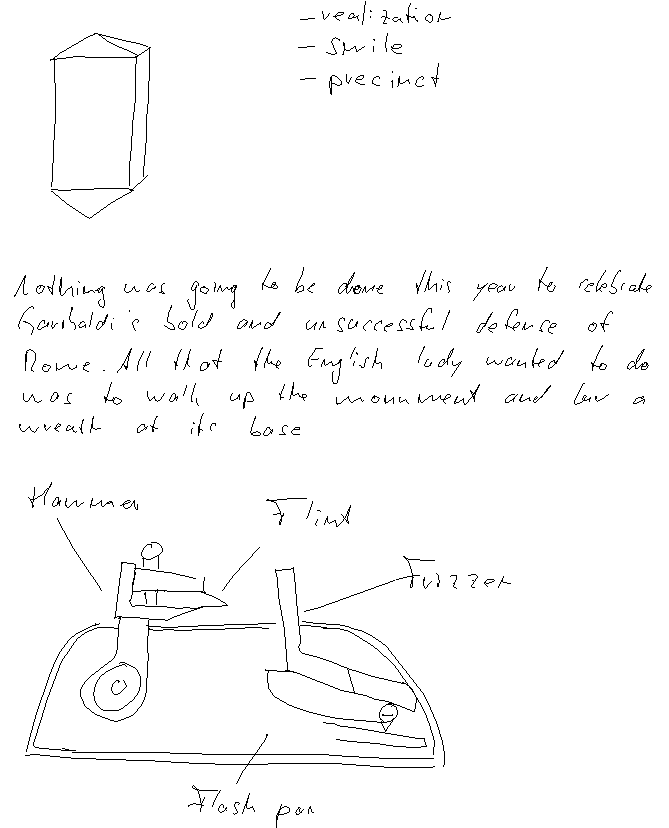 - realization
- smile
- precinct
Nothing was going to be done this year to celebrate
Garibaldi's bold and unsuccessful defense of
Rome. All that the English lady wanted to do
was to walk up the monument and lay a
wreath at its base
Hammer
Flint
Frizzen
Flash pan